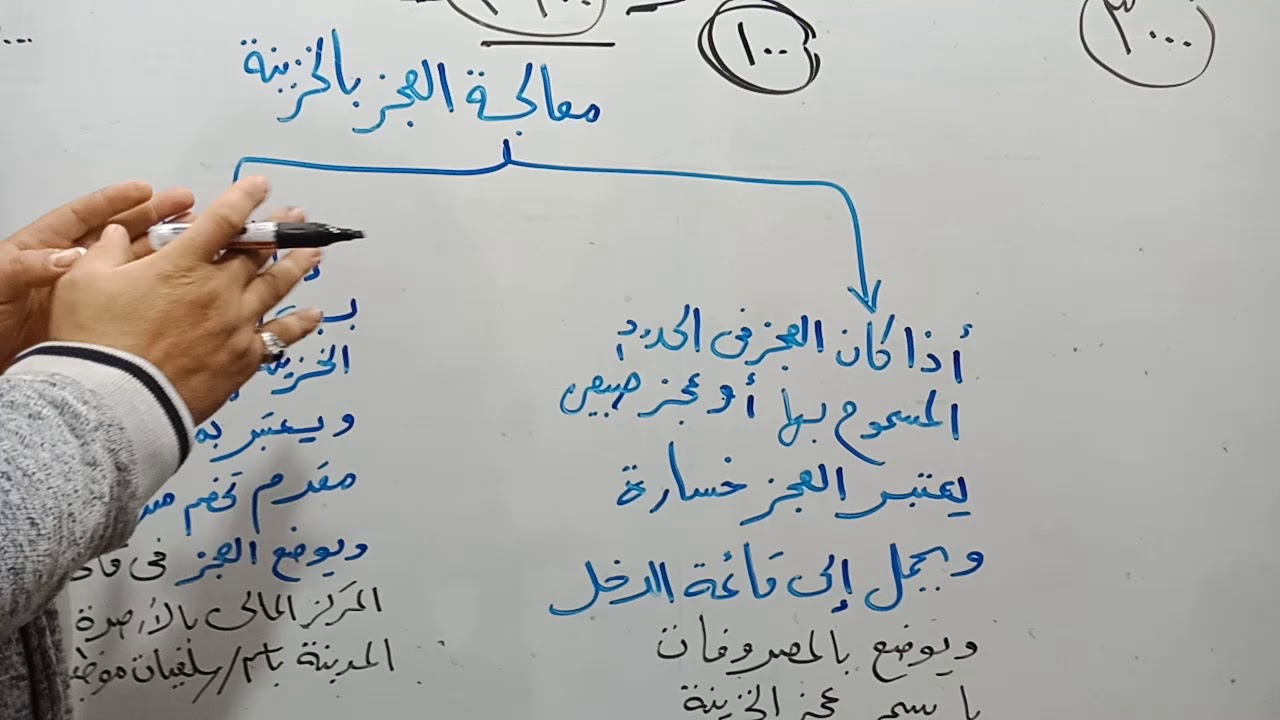 ٣٠٠٠
١٠٠
معالجة العجز بالخزينة
أذا كان العجز فى الحدود
المسموح بها أو عجز طبيعى
يعتبر العجز خسارة
ويحمل إلى قائمة الدخل
ويوضع بالمصروفات
باسم عجز الخزينة
الخزينة
ويعتبر به
مقدم تخصم من
ويوضع العجز فى
المركز المالى بالأرصدة
المدينة باسم/سلفيات